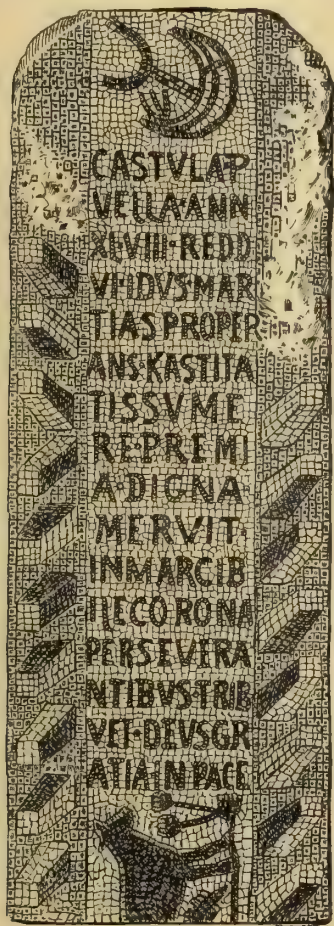 CASTVLA·P
VELLA·ANN
XLVIII·REDD
VI·IDVS·MAR
TIAS PROPER
ANS·KASTITA
TIS SVME
RE·PREMI
A·DIGNA
MERVIT·
INMARCIB
ILE CORONA
PERSEVERA
NTIBVS·TRIB
VET·DEVS GR
ATIA·IN PACE